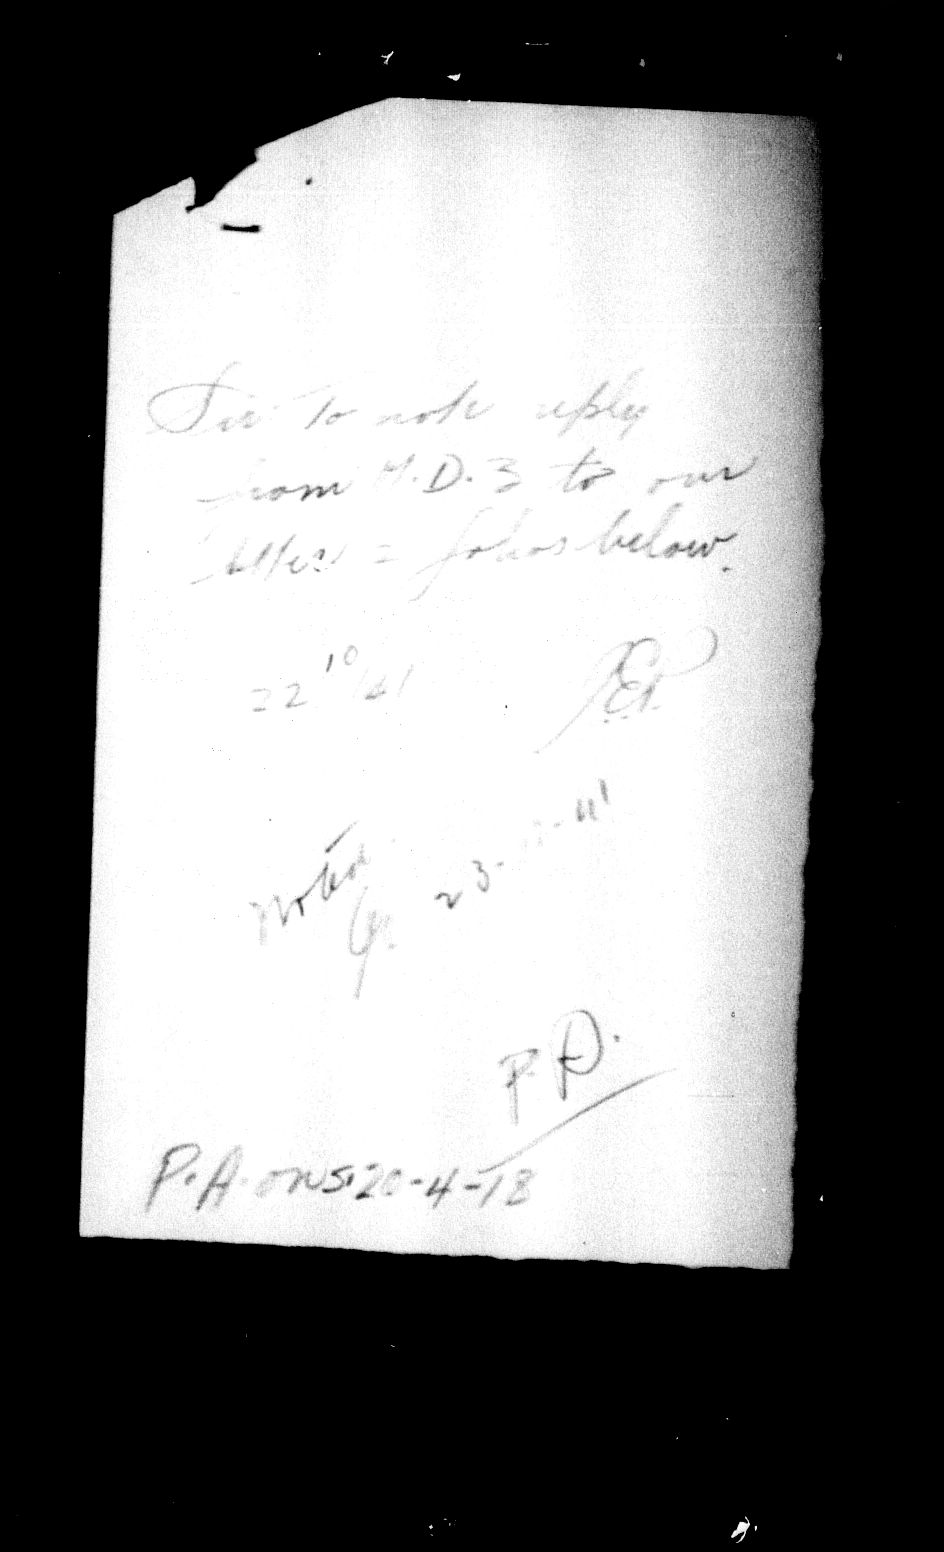 Sir To note reply
from M.D.3 to our
letter = folios below.
22 10/41
Noted 23- -41
P.A.
P.A. ONS. 20-4-18